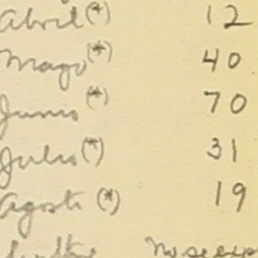 Abril (*) 12
Mayo (*) 40
Junio (*) 70
Julio (*) 31
Agosto (*) 19